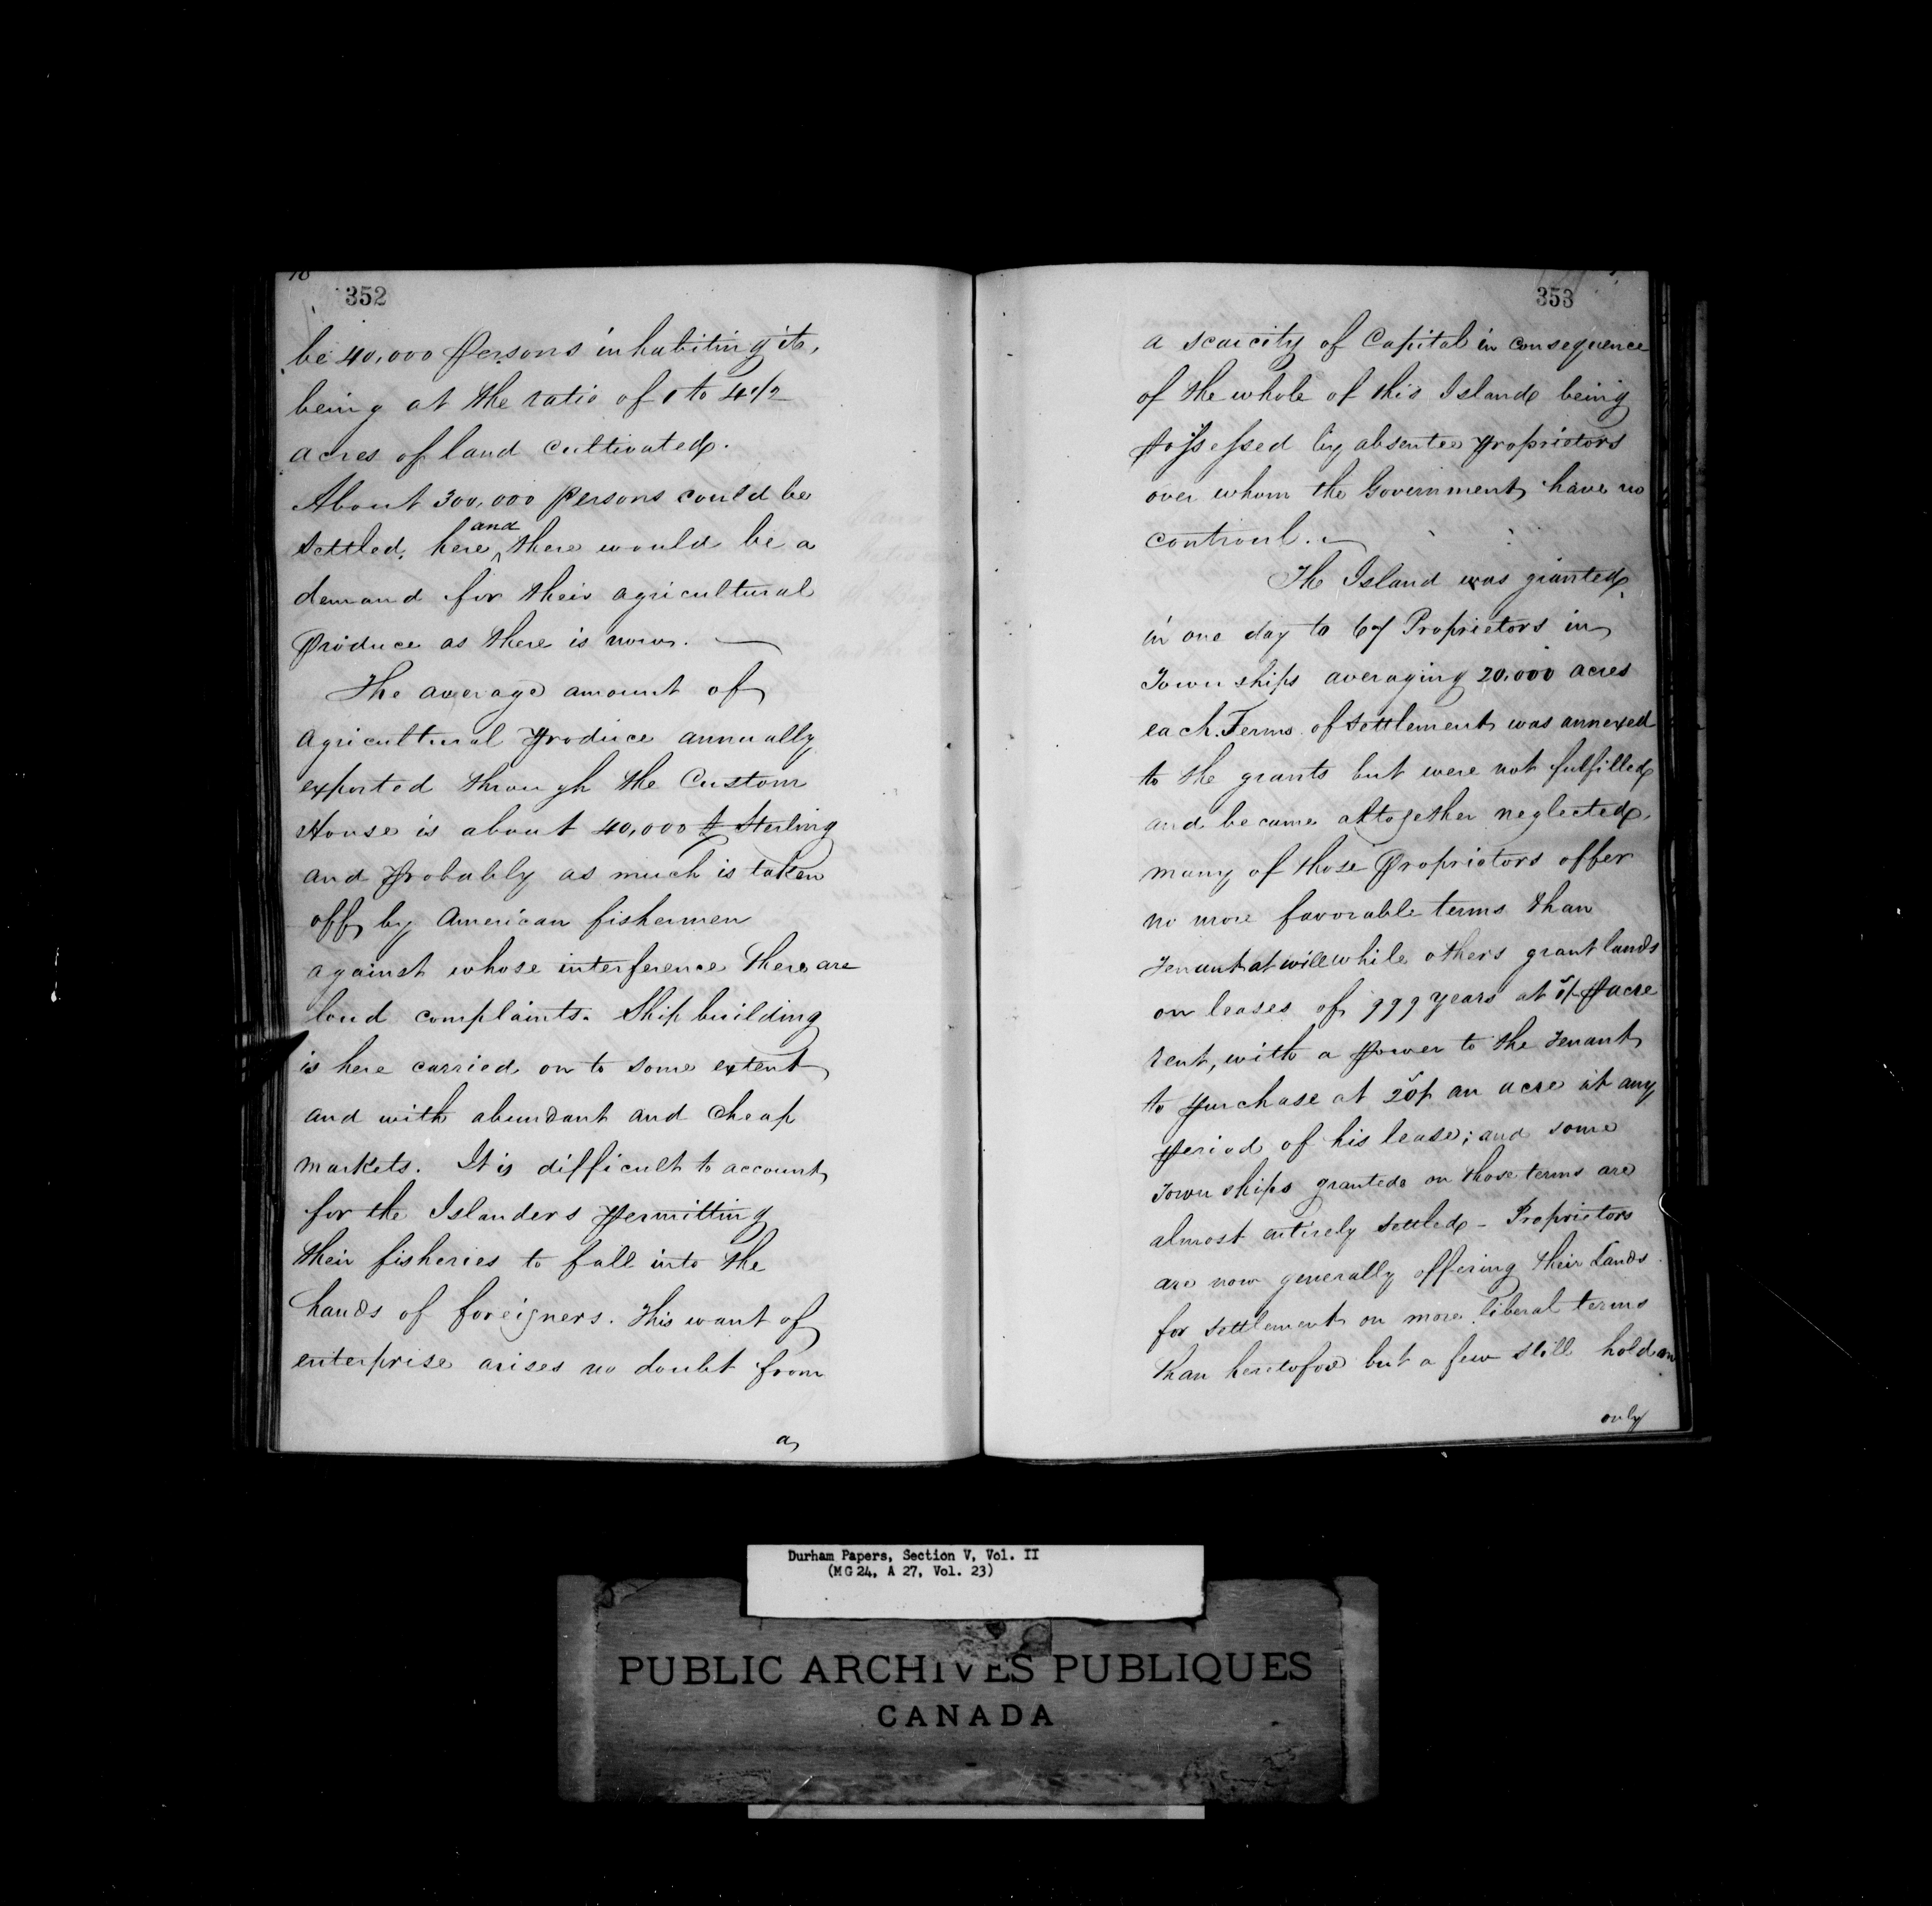 352
be 40,000 Persons inhabiting it,
being at the ratio of 1 to 4 1/2
acres of land cultivated.
About 300,000 Persons could be
settled, here and there would be a
demand for their agricultural
Produce as there is now. —
The average amount of
agricultural Produce annually
exported through the Custom
House is about 40,000 £ Sterling
and Probably as much is taken
off by American fishermen
against whose interference there are
loud complaints. Ship building
is here carried on to some extent
and with abundant and cheap
markets. It is difficult to account
for the Islanders Permitting
their fisheries to fall into the
hands of foreigners. This want of
enterprise arises no doubt from
a
353
a scarcity of Capital in consequence
of the whole of this Island being
Possessed by absentee Proprietors
over whom the Government have no
controul. —
The Island was granted
in one day to 67 Proprietors in
Townships averaging 20,000 acres
each. Terms of settlement was annexed
to the grants but were not fulfilled
and became altogether neglected,
many of those Proprietors offer
no more favorable terms than
Tenant at will while others grant lands
on leases of 999 years at acre
rent, with a Power to the Tenant
to Purchase at an acre at any
Period of his lease; and some
Townships granted on those terms are
almost entirely settled - Proprietors
are now generally offering their Lands
for settlement on more liberal terms
than heretofore but a few still hold on
only
Durham Papers, Section V, Vol. II
(MG 24, A 27, Vol. 23)
PUBLIC ARCHIVES PUBLIQUES
CANADA